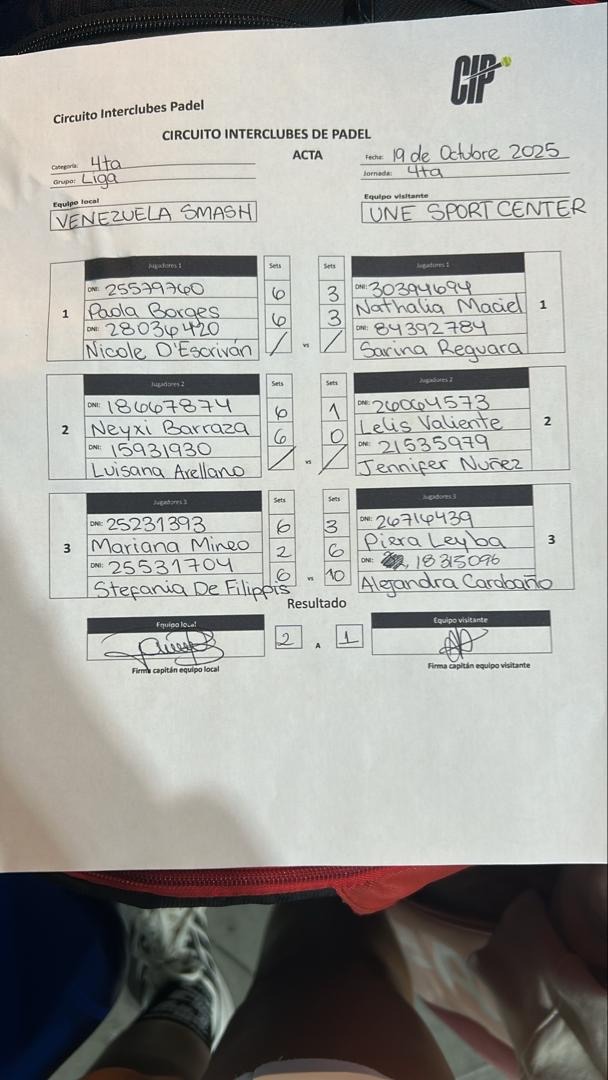 CIP
Circuito Interclubes Padel
CIRCUITO INTERCLUBES DE PADEL
ACTA
Categoría: 4ta
Grupo: Liga
Fecha: 19 de Octubre 2025
Jornada: 4ta
Equipo local
VENEZUELA SMASH
Equipo visitante
UNE SPORT CENTER
Jugadores 1 Sets Sets Jugadores 1
DNI: 25579760 6 3 DNI: 30394694
1 Paola Borges 6 3 Nathalia Maciel 1
DNI: 28036420 / vs / DNI: 84392784
Nicole D'Escriván Sarina Reguara
Jugadores 2 Sets Sets Jugadores 2
DNI: 18667874 6 1 DNI: 26064573
2 Neyxi Barraza 6 0 Lelis Valiente 2
DNI: 15931930 / vs / DNI: 21535979
Luisana Arellano Jennifer Nuñez
Jugadores 3 Sets Sets Jugadores 3
DNI: 25231393 6 3 DNI: 26716439
3 Mariana Mineo 2 6 Piera Leyba 3
DNI: 25531704 6 vs 10 DNI: 18315096
Stefania De Filippis Alejandra Carabaño
Resultado
Equipo local 2 A 1 Equipo visitante
Firma capitán equipo local
Firma capitán equipo visitante